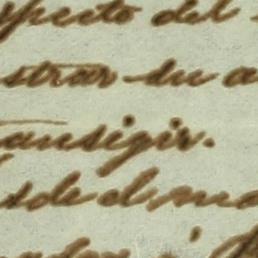 specto del
strar su a
ansigir.
sde el ma